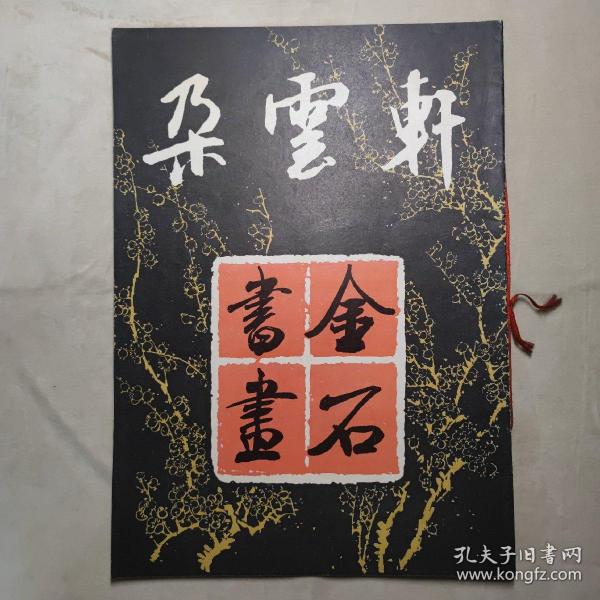 朵雲軒
金石
書畫
孔夫子旧书网
www.kongfz.com